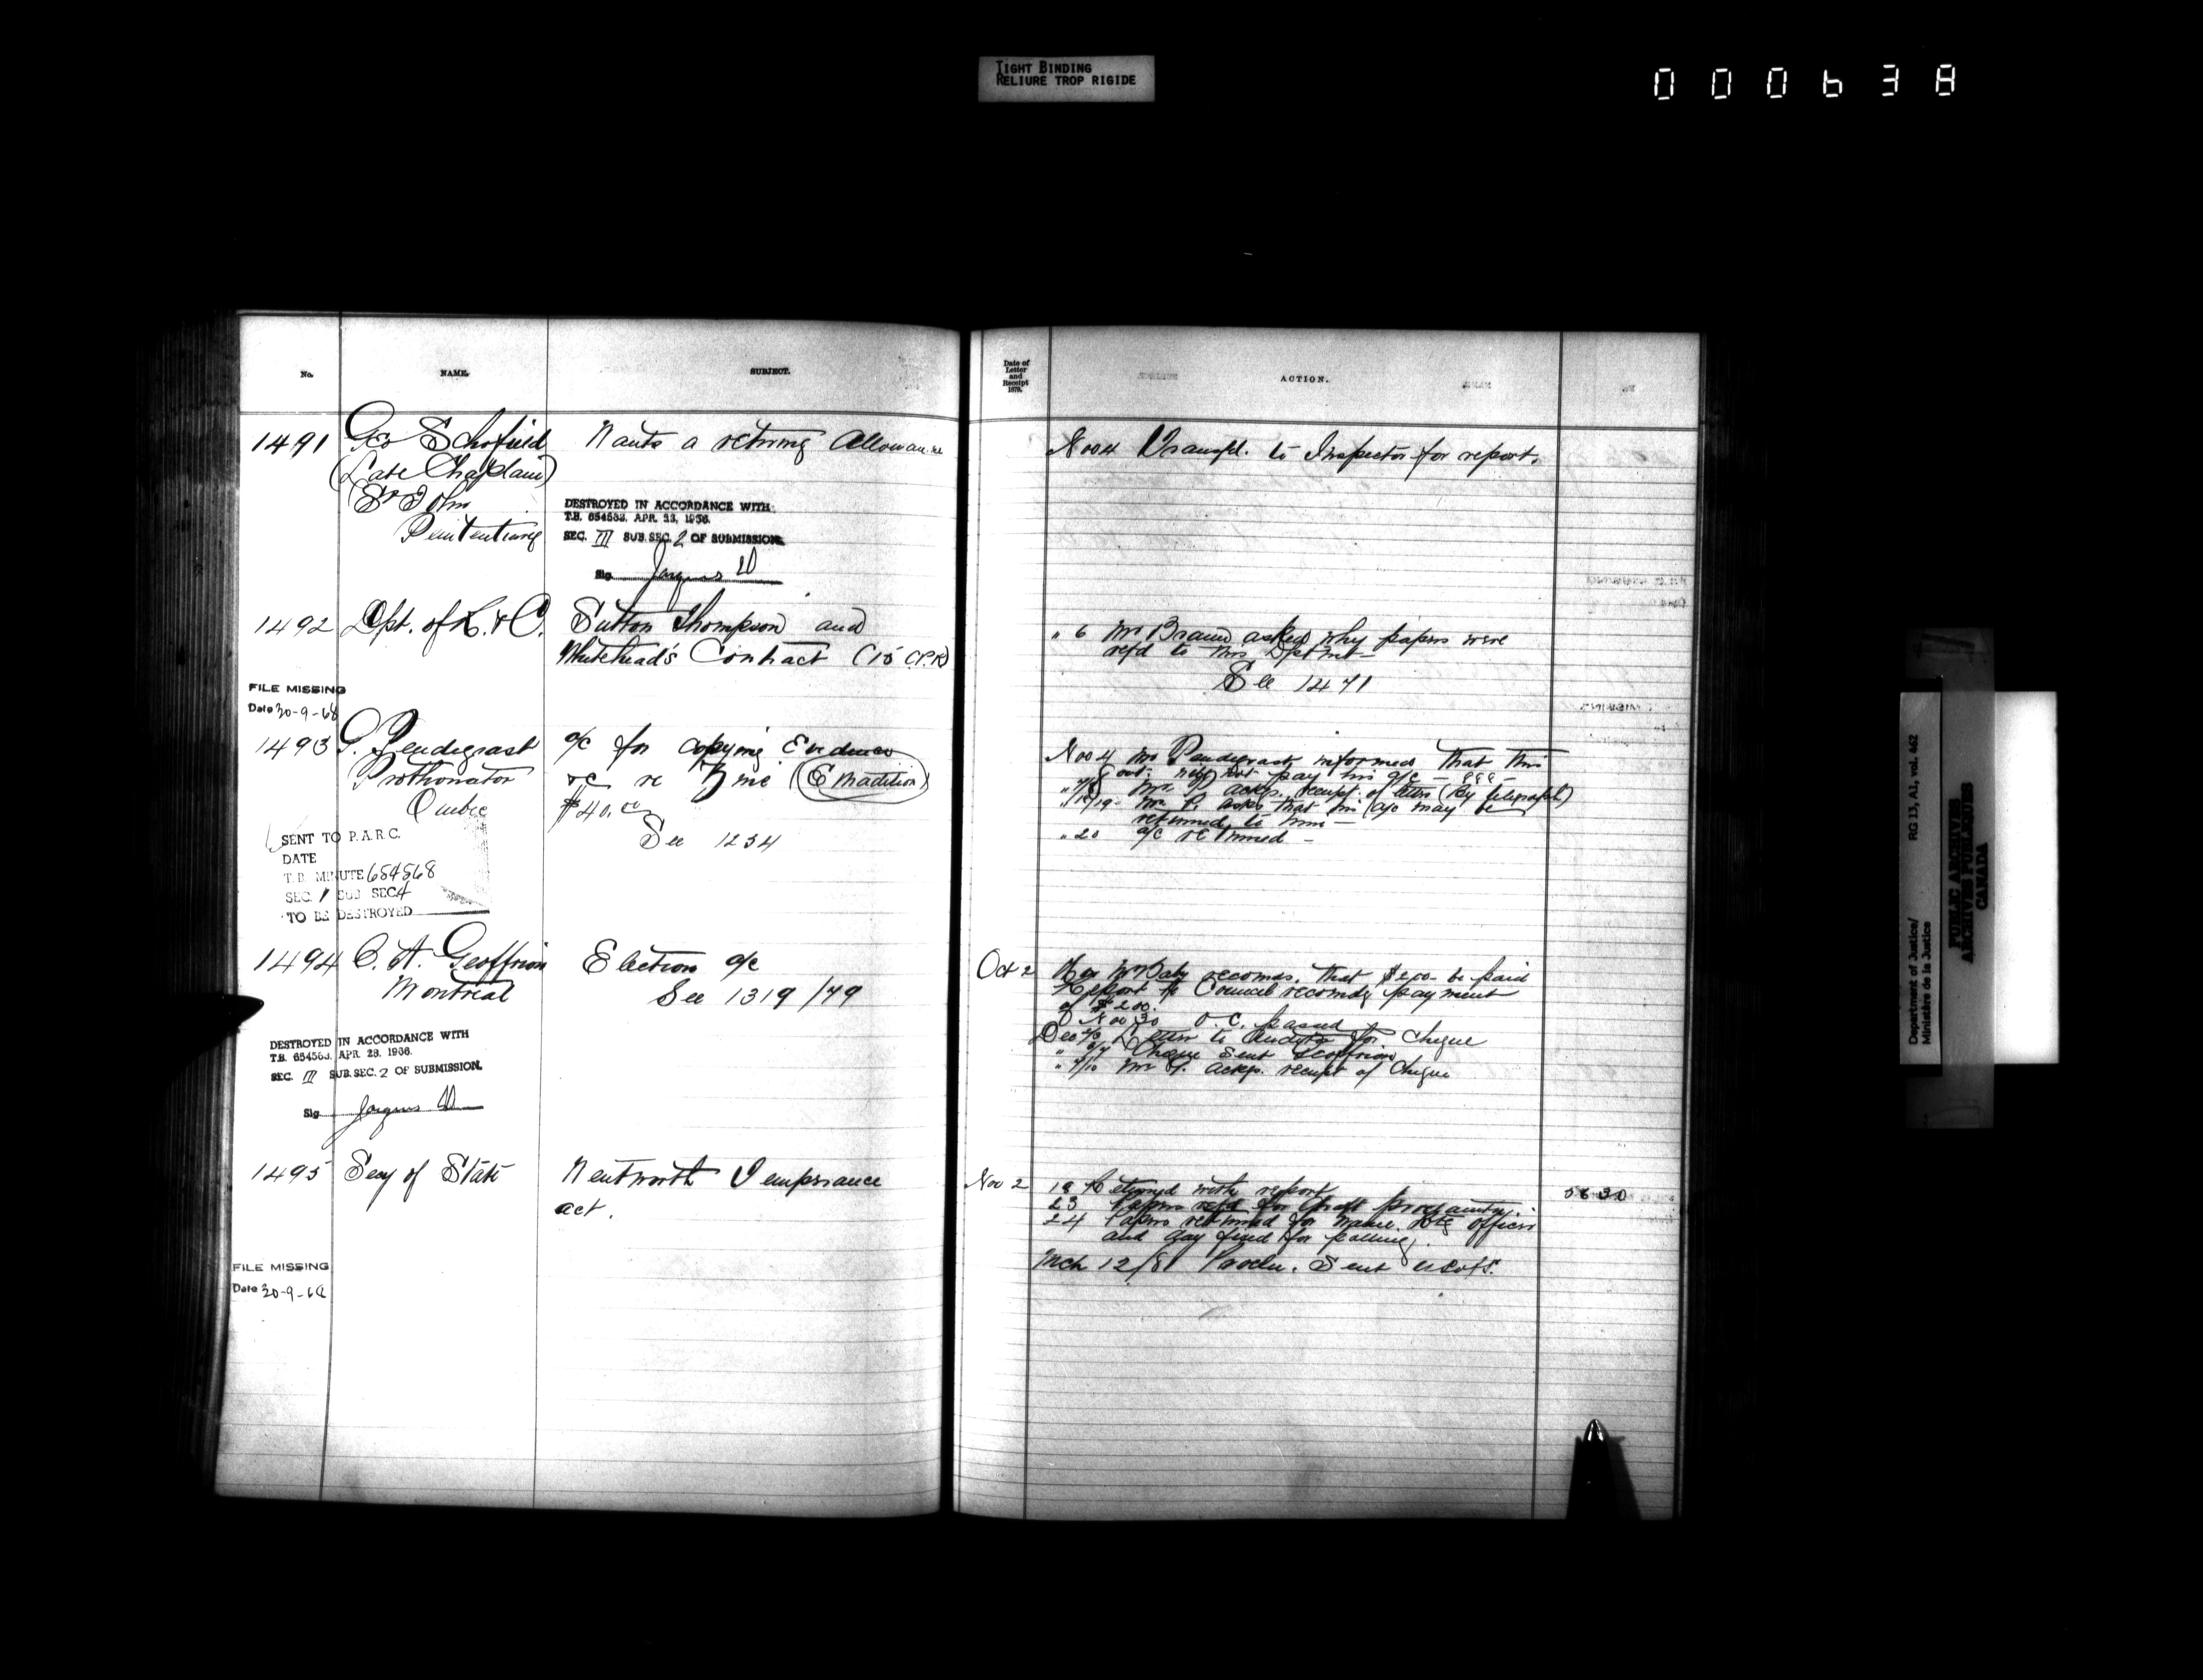 TIGHT BINDING
RELIURE TROP RIGIDE
000638
No.
NAME.
SUBJECT.
Date of
Letter
and
Receipt
1879.
ACTION.
1491 Geo Schofield Wants a retiring Allowance
(Late Chaplain)
St John
Penitentiary
DESTROYED IN ACCORDANCE WITH
T.B. 654563. APR. 23, 1936.
SEC. III SUB. SEC. 2 OF SUBMISSION.
Sig.
Nov 4 Transfd. to Inspector for report.
1492 Dpt. of R. & C. Sutton Thompson and
Whitehead's Contract (15 C.P.R)
" 6 Mr Braun asked why papers were
refd to this Dptmt
See 1471
FILE MISSING
Date 30-9-68
1493 Pendegrast a/c for copying Evidence
Prothonator &c re (Extradition)
Quebec $40.00
See 1234
SENT TO P.A.R.C.
DATE
T.B. MINUTE 654568
SEC. 1 SUB SEC 4
TO BE DESTROYED
Nov 4 Mr Pendegrast informed that this
Govt. will not pay his a/c
Mr P. ackgs. receipt of letter (By telegraph)
" 19 Mr P. asks that his a/c may be
returned to him —
" 20 a/c returned —
1494 C. A. Geoffrion Election a/c
Montreal See 1319/79
DESTROYED IN ACCORDANCE WITH
T.B. 654563. APR. 23. 1936.
SEC. III SUB. SEC. 2 OF SUBMISSION.
Sig
Oct 2 Hon Mr Baby recomds. that $200 be paid
Report to Council recomdg payment
of $200.
Nov 30 O.C. passed
Dec Letter to Auditor for Cheque
" Cheque sent Geoffrion
" 9/10 Mr G. ackgs. receipt of Cheque
1495 Secy of State Wentworth Temperance
act.
FILE MISSING
Date 30-9-68
Nov 2 19 Returned with report
23 Papers refd for draft proclamation.
24 Papers returned for name Rtg officer
and day fixed for polling.
Mch 12/81 Procln. Sent
Department of Justice/
Ministère de la Justice
RG 13, A1, vol. 462
PUBLIC ARCHIVES
ARCHIVES PUBLIQUES
CANADA